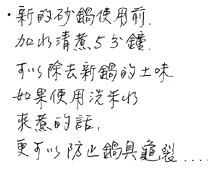 ·新的砂鍋使用前,
加水清煮5分鐘,
可以除去新鍋的土味
如果使用洗米水
來煮的話,
更可以防止鍋具龜裂....